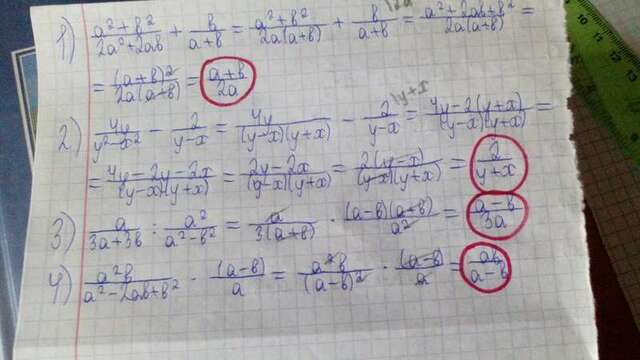 1) (a²+b²)/(2a²+2ab) + b/(a+b) = (a²+b²)/(2a(a+b)) + b/(a+b) = (a²+2ab+b²)/(2a(a+b)) =
= (a+b)²/(2a(a+b)) = (a+b)/(2a)
2) 4y/(y²-x²) - 2/(y-x) = 4y/((y-x)(y+x)) - 2/(y-x) \y+x = (4y-2(y+x))/((y-x)(y+x)) =
= (4y-2y-2x)/((y-x)(y+x)) = (2y-2x)/((y-x)(y+x)) = 2(y-x)/((y-x)(y+x)) = 2/(y+x)
3) a/(3a+3b) : a²/(a²-b²) = a/(3(a+b)) · (a-b)(a+b)/a² = (a-b)/(3a)
4) a²b/(a²-2ab+b²) · (a-b)/a = a²b/(a-b)² · (a-b)/a = ab/(a-b)